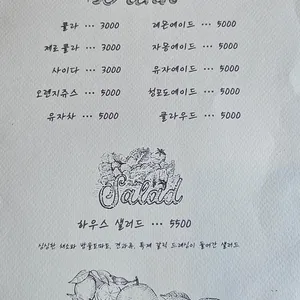 콜라 ... 3000 레몬에이드 ... 5000
제로콜라 ... 3000 자몽에이드 ... 5000
사이다 ... 3000 유자에이드 ... 5000
오렌지쥬스 ... 5000 청포도에이드 ... 5000
유자차 ... 5000 클라우드 ... 5000
Salad
하우스 샐러드 ... 5500
싱싱한 채소와 방울토마토, 견과류, 특제 갈릭 드레싱이 들어간 샐러드